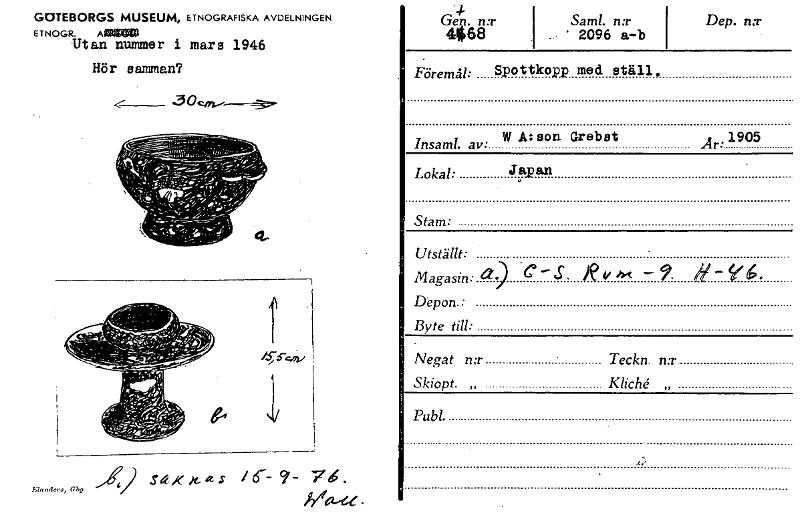 GÖTEBORGS MUSEUM, ETNOGRAFISKA AVDELNINGEN
ETNOGR.
Utan nummer i mars 1946
Hör samman?
30 cm
a
15,5 cm
b
b.) saknas 15-9-76.
Elanders, Gbg
+
Gen. n:r Saml. n:r Dep. n:r
4168 2096 a-b
Föremål: Spottkopp med ställ.
Insaml. av: W A:son Grebst År: 1905
Lokal: Japan
Stam:
Utställt:
Magasin: a.) C-S. Rum-9. H-46.
Depon.:
Byte till:
Negat n:r Teckn. n:r
Skiopt. „ Kliché „
Publ.